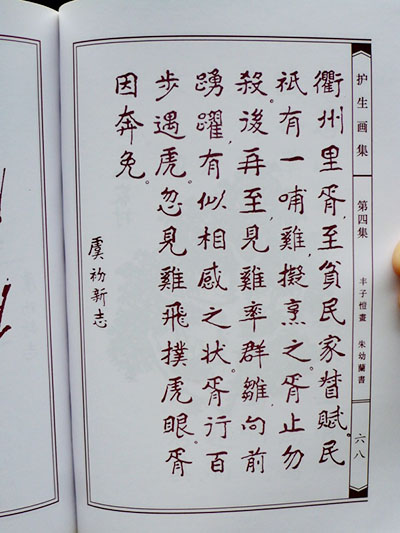 衢州里胥，至貧民家督賦。民
祇有一哺雞，擬烹之。胥止勿
殺。後再至，見雞率群雛向前
踴躍，有似相感之状。胥行百
步遇虎。忽見雞飛撲虎眼。胥
因奔免。
虞初新志
护生画集
第四集
丰子愷畫
朱幼蘭書
六八